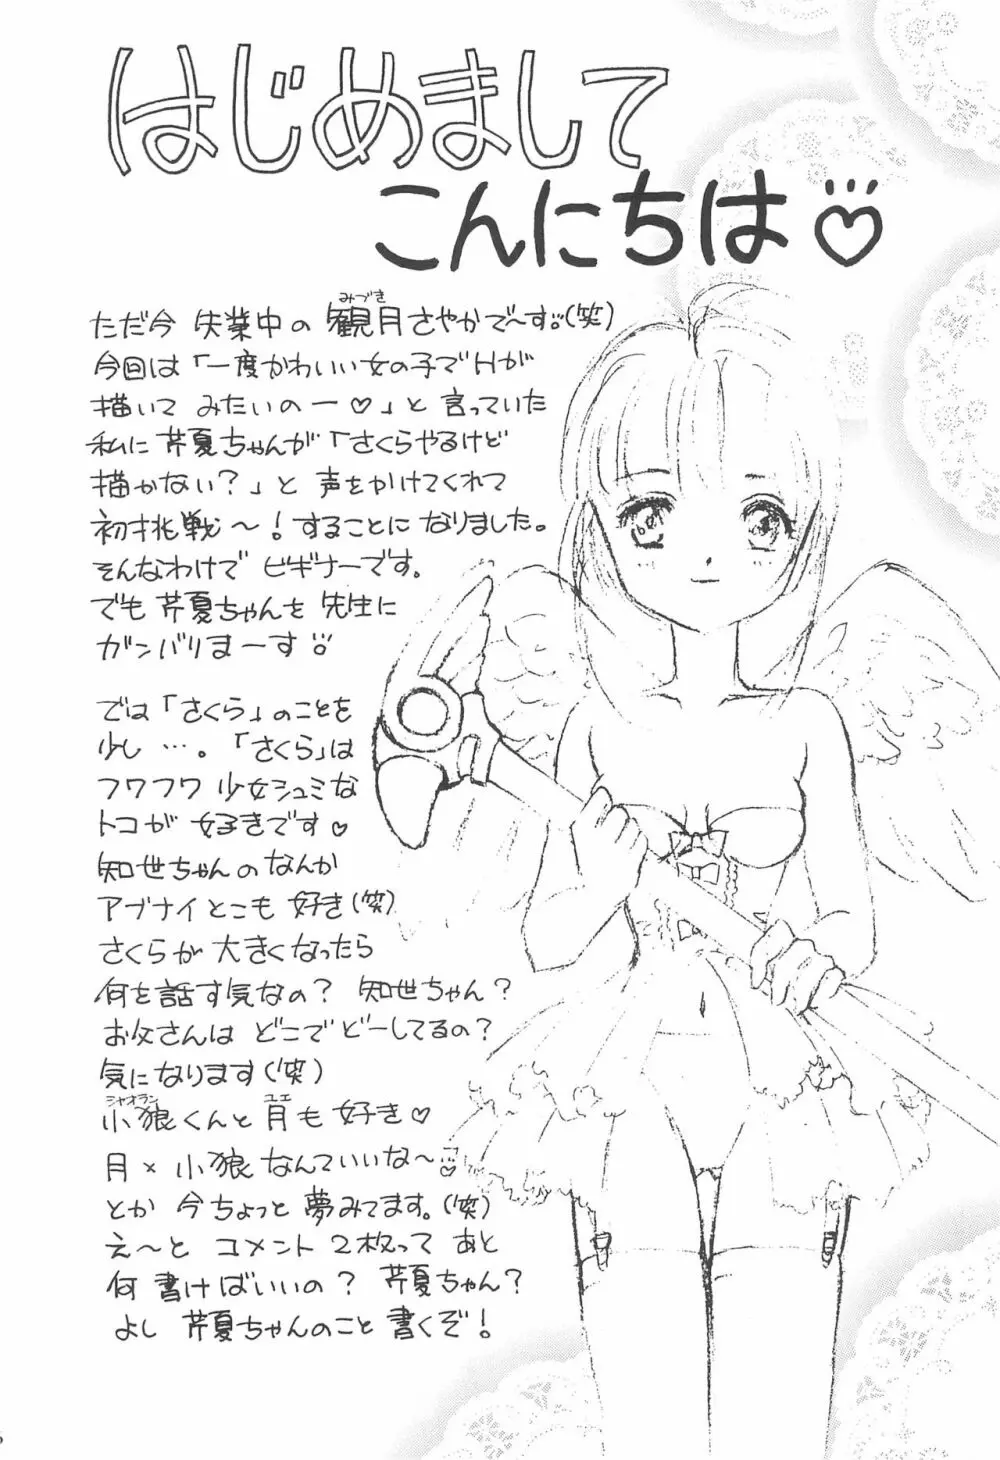 はじめまして
こんにちは♡
ただ今 失業中の 観月さやかで〜す。(笑)
みづき
今回は「一度かわいい女の子でHが
描いて みたいのー♡」と 言っていた
私に 芹夏ちゃんが「さくらやるけど
描かない?」と 声をかけてくれて
初挑戦〜!することに なりました。
そんなわけで ビギナーです。
でも 芹夏ちゃんを 先生に
ガンバリまーす
では「さくら」のことを
少し…。「さくら」は
フワフワ 少女シュミな
トコが 好きです♡
知世ちゃんのなんか
アブナイとこも 好き(笑)
さくらが 大きくなったら
何を話す気なの? 知世ちゃん?
お父さんは どこでどーしてるの?
気になります(笑)
シャオラン ユエ
小狼くんと 月も 好き♡
月×小狼なんていいな〜
とか 今ちょっと 夢みてます。(笑)
え〜と コメント 2枚って あと
何 書けばいいの? 芹夏ちゃん?
よし 芹夏ちゃんのこと 書くぞ!